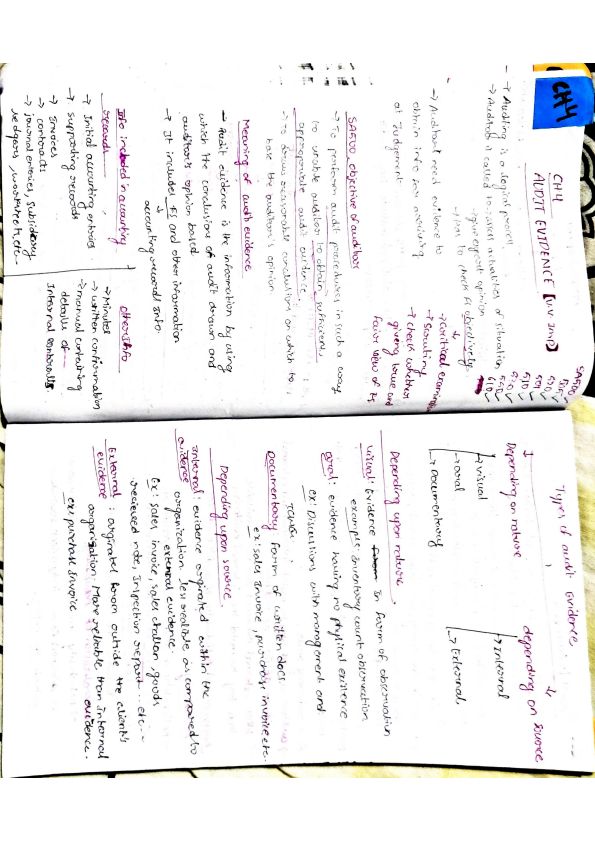 CH4
CH4
AUDIT EVIDENCE [V.V. IMP]
SA500
505
530
501
550
570
510
610
→ Auditing is a logical process
→ Auditor is called to assess actualities of situation
→ give expert opinion
→ has to check FS objectively
→ critical examine
→ Scrutiny
→ check whether
giving true and
fair view of FS
→ Auditor need evidence to
obtain info for arriving
at Judgement
SA500 objective of auditor
→ To perform audit procedures in such a way
to enable auditor to obtain sufficient,
appropriate audit evidence,
→ to draw reasonable conclusions on which to
base the auditor's opinion
Meaning of audit evidence
→ Audit evidence is the information by using
which the conclusions of audit drawn and
auditor's opinion based
→ It includes FS and other information
accounting records info
Info included in accounting
records
→ Initial accounting entries
→ supporting records
→ Invoices
→ contracts
→ Journal entries, subsidiary
ledgers, worksheets, etc--
other info
→ Minutes
→ written confirmation
→ manual containing
details of
Internal controls
Types of audit Evidence
Depending on nature
→ visual
→ oral
→ Documentary
depending on source
→ Internal
→ External
Depending upon nature
visual: Evidence In form of observation
example: Inventory count observation
oral: evidence having no physical existence
ex: Discussions with management and
TCWG.
Documentary form of written docs
ex: sales Invoice, purchase invoice etc-
Depending upon source
Internal: evidence orginated within the
evidence organization less realible as compared to
external evidence
Ex: sales invoice, sales challan, goods
recieved note, Inspection report etc--
External: orginated from outside the client's
evidence organisation. More reliable than Internal
evidence.
ex: purchase Invoice